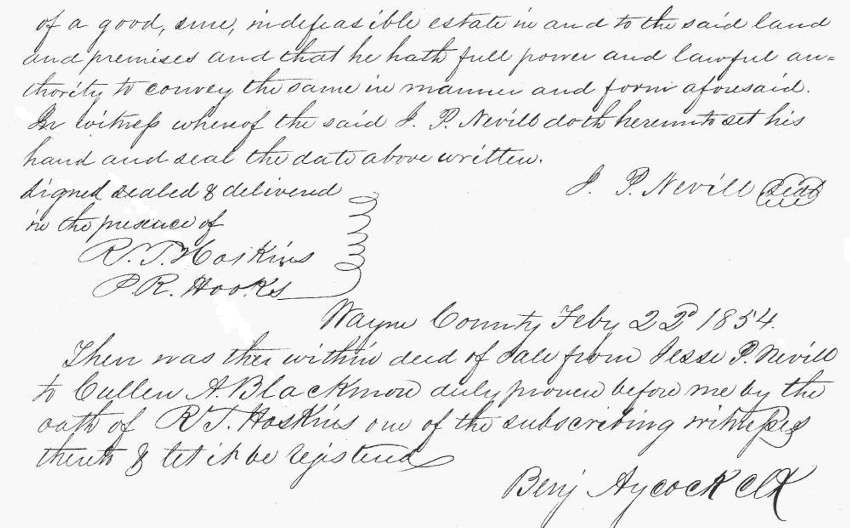 of a good, sure, indefeasible estate in and to the said land
and premises and that he hath full power and lawful au=
thority to convey the same in manner and form aforesaid.
In witness whereof the said J. P. Nevill doth hereunto set his
hand and seal the date above written.
J. P. Nevill Seal
Signed sealed & delivered
in the presence of
R. T. Hoskins
P. R. Hooks
Wayne County Feby 22d 1854.
Then was ther within deed of sale from Jesse P. Nevill
to Cullen A. Blackmon duly proven before me by the
oath of R T. Hoskins one of the subscribing witnesses
thereto & let it be registered
Benj Aycock Clk